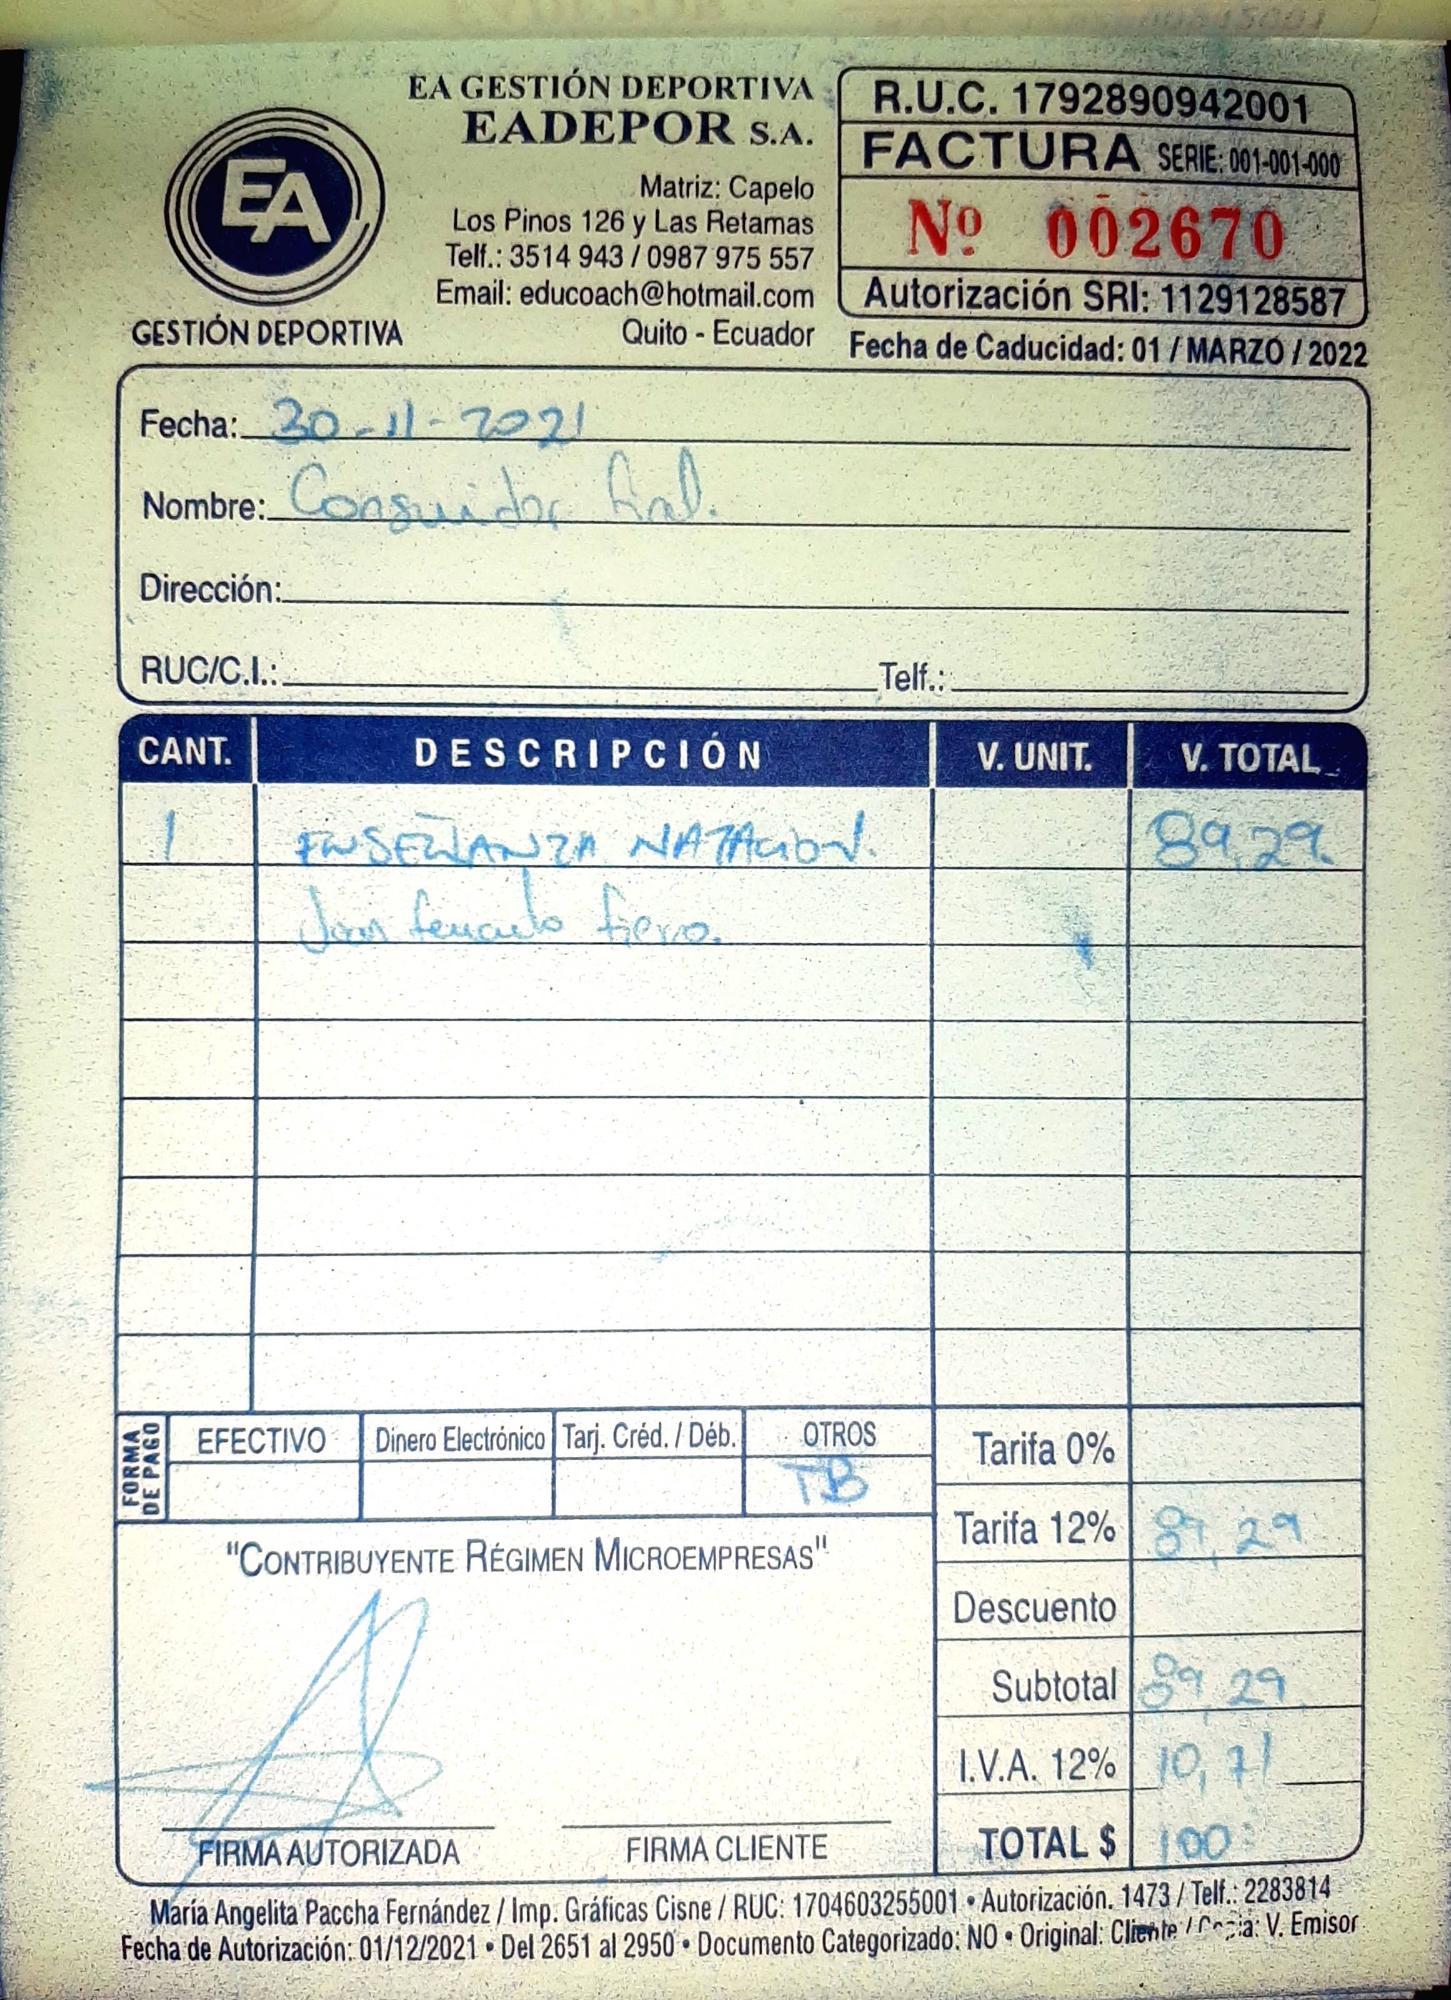 EA GESTIÓN DEPORTIVA
EADEPOR S.A.
Matriz: Capelo
Los Pinos 126 y Las Retamas
Telf.: 3514 943 / 0987 975 557
Email: educoach@hotmail.com
Quito - Ecuador
EA
GESTIÓN DEPORTIVA
R.U.C. 1792890942001
FACTURA SERIE: 001-001-000
Nº 002670
Autorización SRI: 1129128587
Fecha de Caducidad: 01 / MARZO / 2022
Fecha: 30-11-2021
Nombre: Consumidor final.
Dirección:
RUC/C.I.: Telf.:
CANT. DESCRIPCIÓN V. UNIT. V. TOTAL
1 ENSEÑANZA NATACION. 89,29.
Juan Fernando Fierro.
FORMA DE PAGO
EFECTIVO Dinero Electrónico Tarj. Créd. / Déb. OTROS
TB
Tarifa 0%
Tarifa 12% 89,29
Descuento
Subtotal 89,29
I.V.A. 12% 10,71
TOTAL $ 100
"CONTRIBUYENTE RÉGIMEN MICROEMPRESAS"
FIRMA AUTORIZADA FIRMA CLIENTE
María Angelita Paccha Fernández / Imp. Gráficas Cisne / RUC: 1704603255001 • Autorización. 1473 / Telf.: 2283814
Fecha de Autorización: 01/12/2021 • Del 2651 al 2950 • Documento Categorizado: NO • Original: Cliente / Copia: V. Emisor